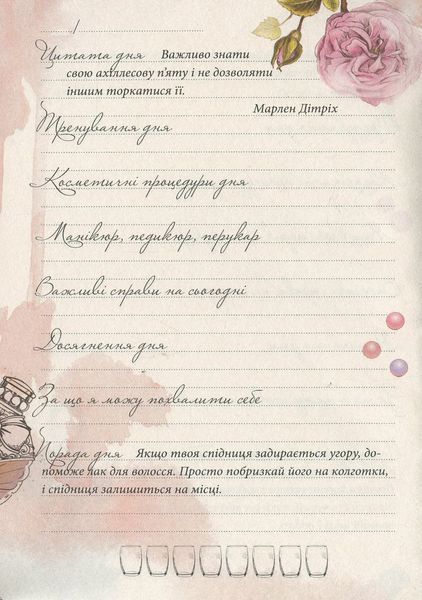 /
Цитата дня Важливо знати
свою ахіллесову п'яту і не дозволяти
іншим торкатися її.
Марлен Дітріх
Тренування дня
Косметичні процедури дня
Манікюр, педикюр, перукар
Важливі справи на сьогодні
Досягнення дня
За що я можу похвалити себе
Порада дня Якщо твоя спідниця задирається угору, до-
поможе лак для волосся. Просто побризкай його на колготки,
і спідниця залишиться на місці.